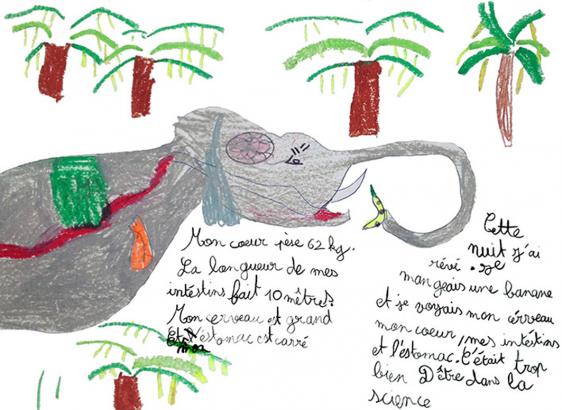 Mon coeur pèse 62 kg.
La longueur de mes
intestins fait 10 mètres.
Mon cerveau est grand
l'estomac est carré
Cette
nuit j'ai
révé . je
mangeais une banane
et je voyais mon cerveau
mon coeur, mes intestins
et l'estomac. C'était trop
bien D'être dans la
science